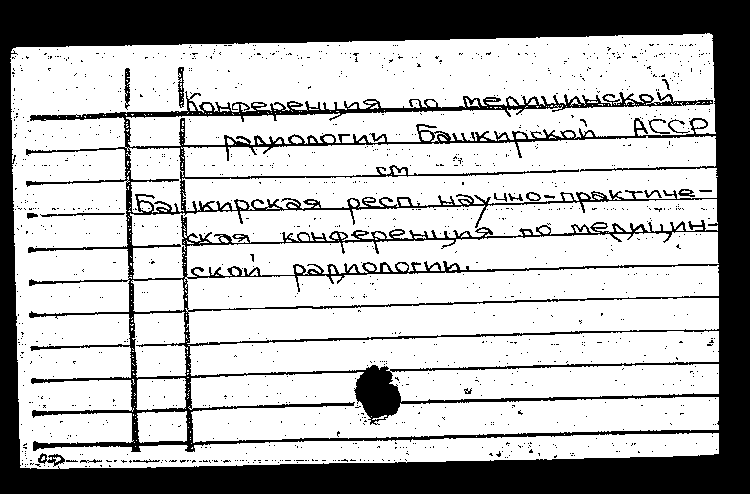 Конференция по медицинской
радиологии Башкирской АССР
см
Башкирская респ. научно-практиче-
ская конференция по медицин-
ской радиологии.